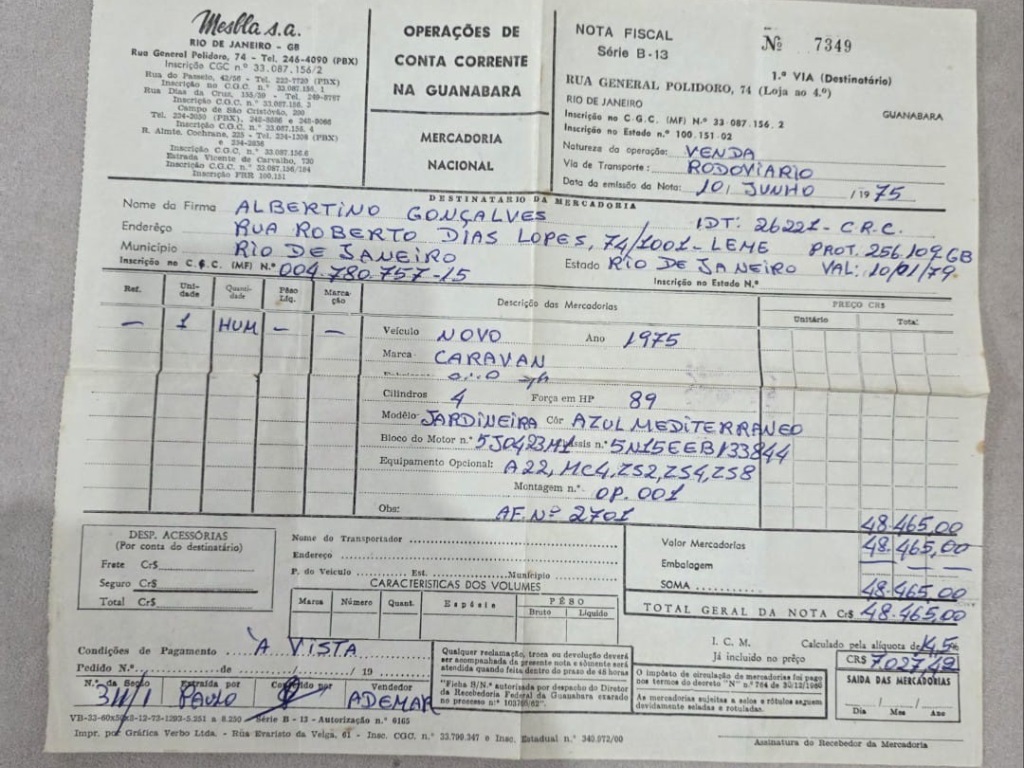 Mesbla s.a.
RIO DE JANEIRO - GB
Rua General Polidoro, 74 - Tel. 246-4090 (PBX)
Inscrição CGC n.º 33.087.156/2
Rua do Passeio, 42/56 - Tel. 222-7720 (PBX)
Inscrição no C.G.C. n.º 33.087.156. 1
Rua Dias da Cruz, 155/59 - Tel. 249-8787
Inscrição C.G.C. n.º 33.087.156. 3
Campo de São Cristóvão, 290
Inscrição C.G.C. n.º 33.087.156. 4
R. Almte. Cochrane, 225 - Tel. 234-1308 (PBX)
e 234-2838
Inscrição C.G.C. n.º 33.087.156.6
Estrada Vicente de Carvalho, 730
Inscrição C.G.C. n.º 33.087.156/184
Inscrição FRR 100.151
OPERAÇÕES DE
CONTA CORRENTE
NA GUANABARA
MERCADORIA
NACIONAL
NOTA FISCAL
Série B-13
Nº 7349
1.ª VIA (Destinatário)
RUA GENERAL POLIDORO, 74 (Loja ao 4.º)
RIO DE JANEIRO GUANABARA
Inscrição no C.G.C. (MF) Nº 33 087.156.2
Inscrição no Estado n.º 100.151.02
Natureza da operação: VENDA
Via de Transporte: RODOVIARIO
Data da emissão da Nota: 10, JUNHO /1975
DESTINATÁRIO DA MERCADORIA
Nome da Firma ALBERTINO GONÇALVES IDT: 26221 - C.R.C.
Enderêço RUA ROBERTO DIAS LOPES, 74/1001 - LEME PROT. 256.109 GB
Município RIO DE JANEIRO Estado RIO DE JANEIRO VAL: 10/01/79
Inscrição no C.G.C. (MF) N.º 004.780.757-15 Inscrição no Estado N.º
Ref. Unidade Quantidade Pêso Líq. Marcação Descrição das Mercadorias PREÇO CR$
Unitário Total
— 1 HUM — — Veículo NOVO Ano 1975
Marca CARAVAN
Cilindros 4 Força em HP 89
Modêlo JARDINEIRA Côr AZUL MEDITERRANEO
Bloco do Motor n.º 5J0423M1 5N15EEB133844
Equipamento Opcional: A22, MC4, ZS2, ZS4, ZS8
Montagem n.º OP. 001
Obs: AF. Nº 2701
48.465,00
DESP. ACESSÓRIAS
(Por conta do destinatário)
Frete Cr$
Seguro Cr$
Total Cr$
Nome do Transportador
Endereço
P. do Veículo Est. Município
CARACTERISTICAS DOS VOLUMES
Marca Número Quant. Espécie PÊSO
Bruto Líquido
Valor Mercadorias 48.465,00
Embalagem — — —
SOMA 48.465,00
TOTAL GERAL DA NOTA Cr$ 48.465,00
Condições de Pagamento À VISTA
Pedido N.º de / 19
N.º da Seção Extraída por Conferido por Vendedor
311/1 PAULO ADEMAR
Qualquer reclamação, troca ou devolução deverá
ser acompanhada da presente nota e sòmente será
atendida quando feita dentro do prazo de 48 horas
"Ficha B/N.ª autorizada por despacho do Diretor
da Recebedoria Federal da Guanabara exarado
no processo n.º 103765/62".
I. C. M. Calculado pela alíquota de 14,5%
Já incluido no prêço CR$ 7027,42
O impôsto de circulação de mercadorias foi pago
nos termos do decreto "N" n.º 784 de 30/12/1966
As mercadorias sujeitas a selos e rótulos seguem
devidamente seladas e rotuladas.
SAÍDA DAS MERCADORIAS
Dia Mes Ano
Série B - 13 - Autorização n.º 6165
Impr. por Gráfica Verbo Ltda. - Rua Evaristo da Veiga, 61 - Insc. CGC. n.º 33.790.347 e Insc. Estadual n.º 340.072/00
Assinatura do Recebedor da Mercadoria